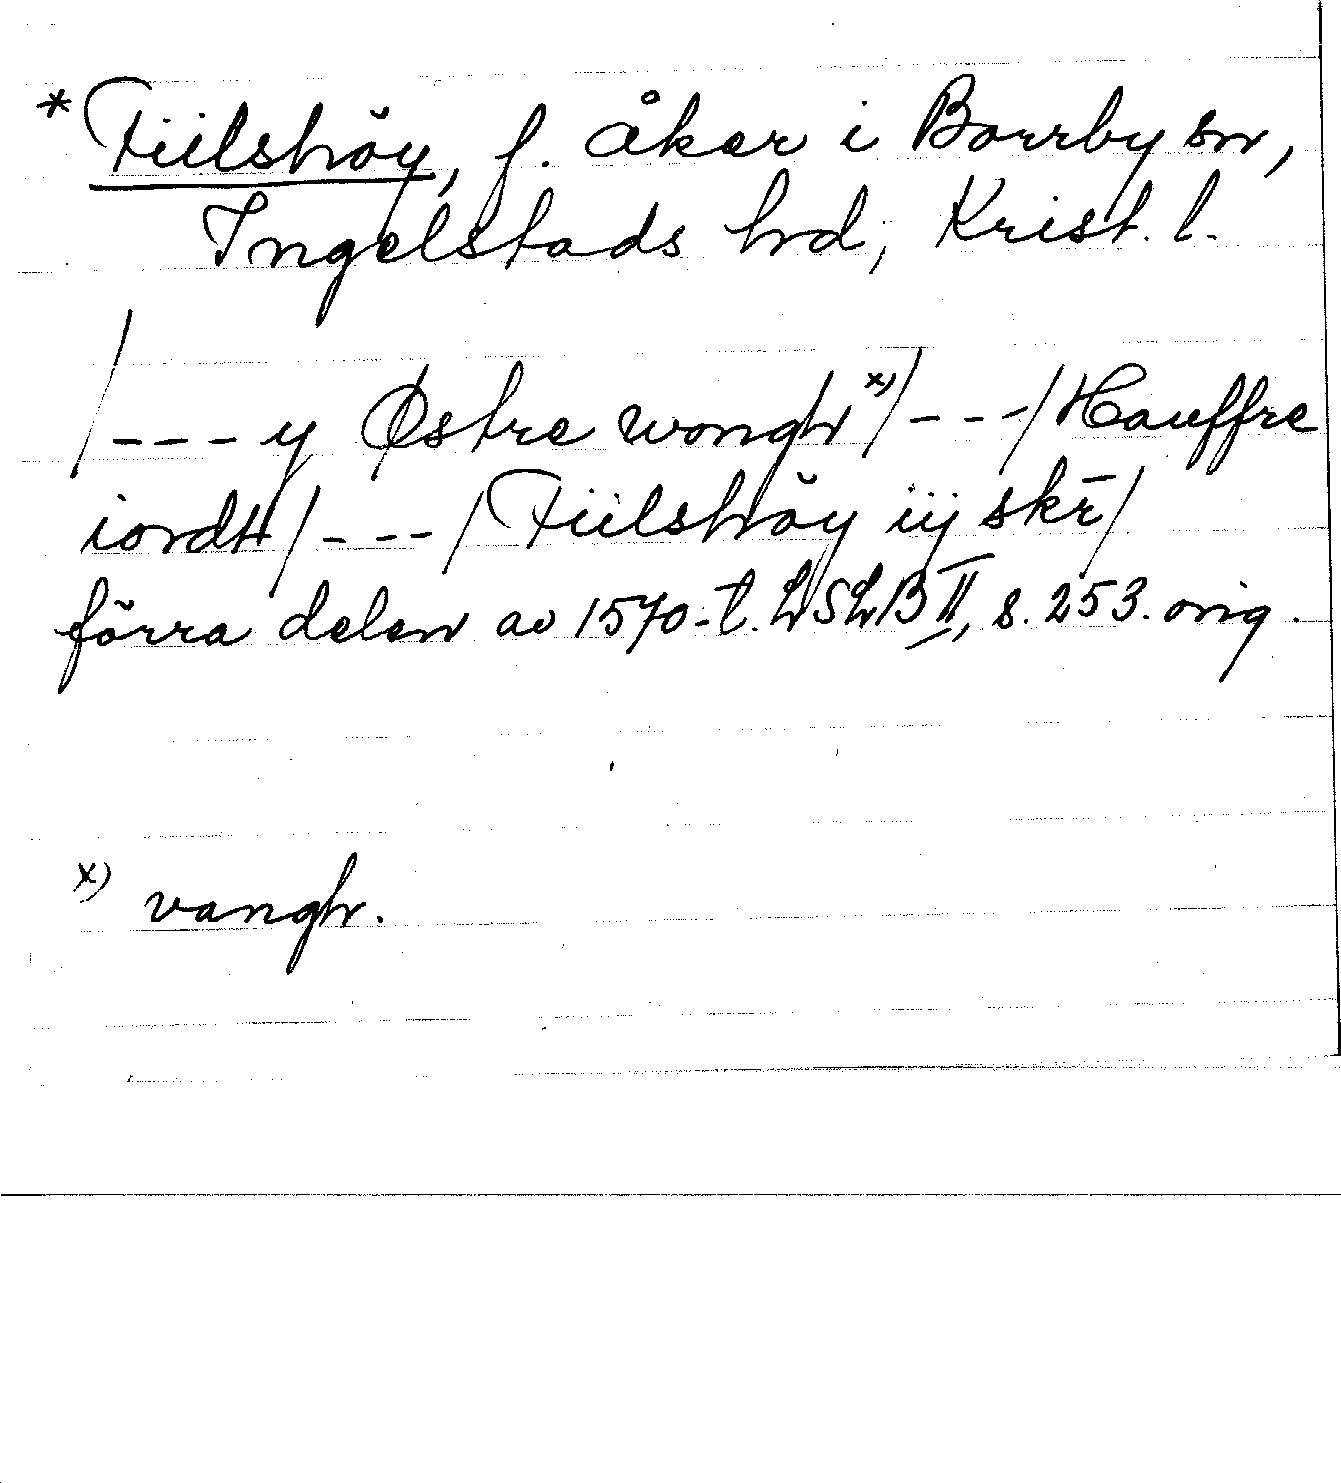 * Fiilshöy, f. åker i Borrby sn,
Ingelstads hd, Krist. l.
/--- y Østre wongh x)/---/ Hauffre
iordtt/---/ Fiilshöy iij skr̄/
förra delen av 1570-t. LSLB II, s. 253. orig.
x) vangh.